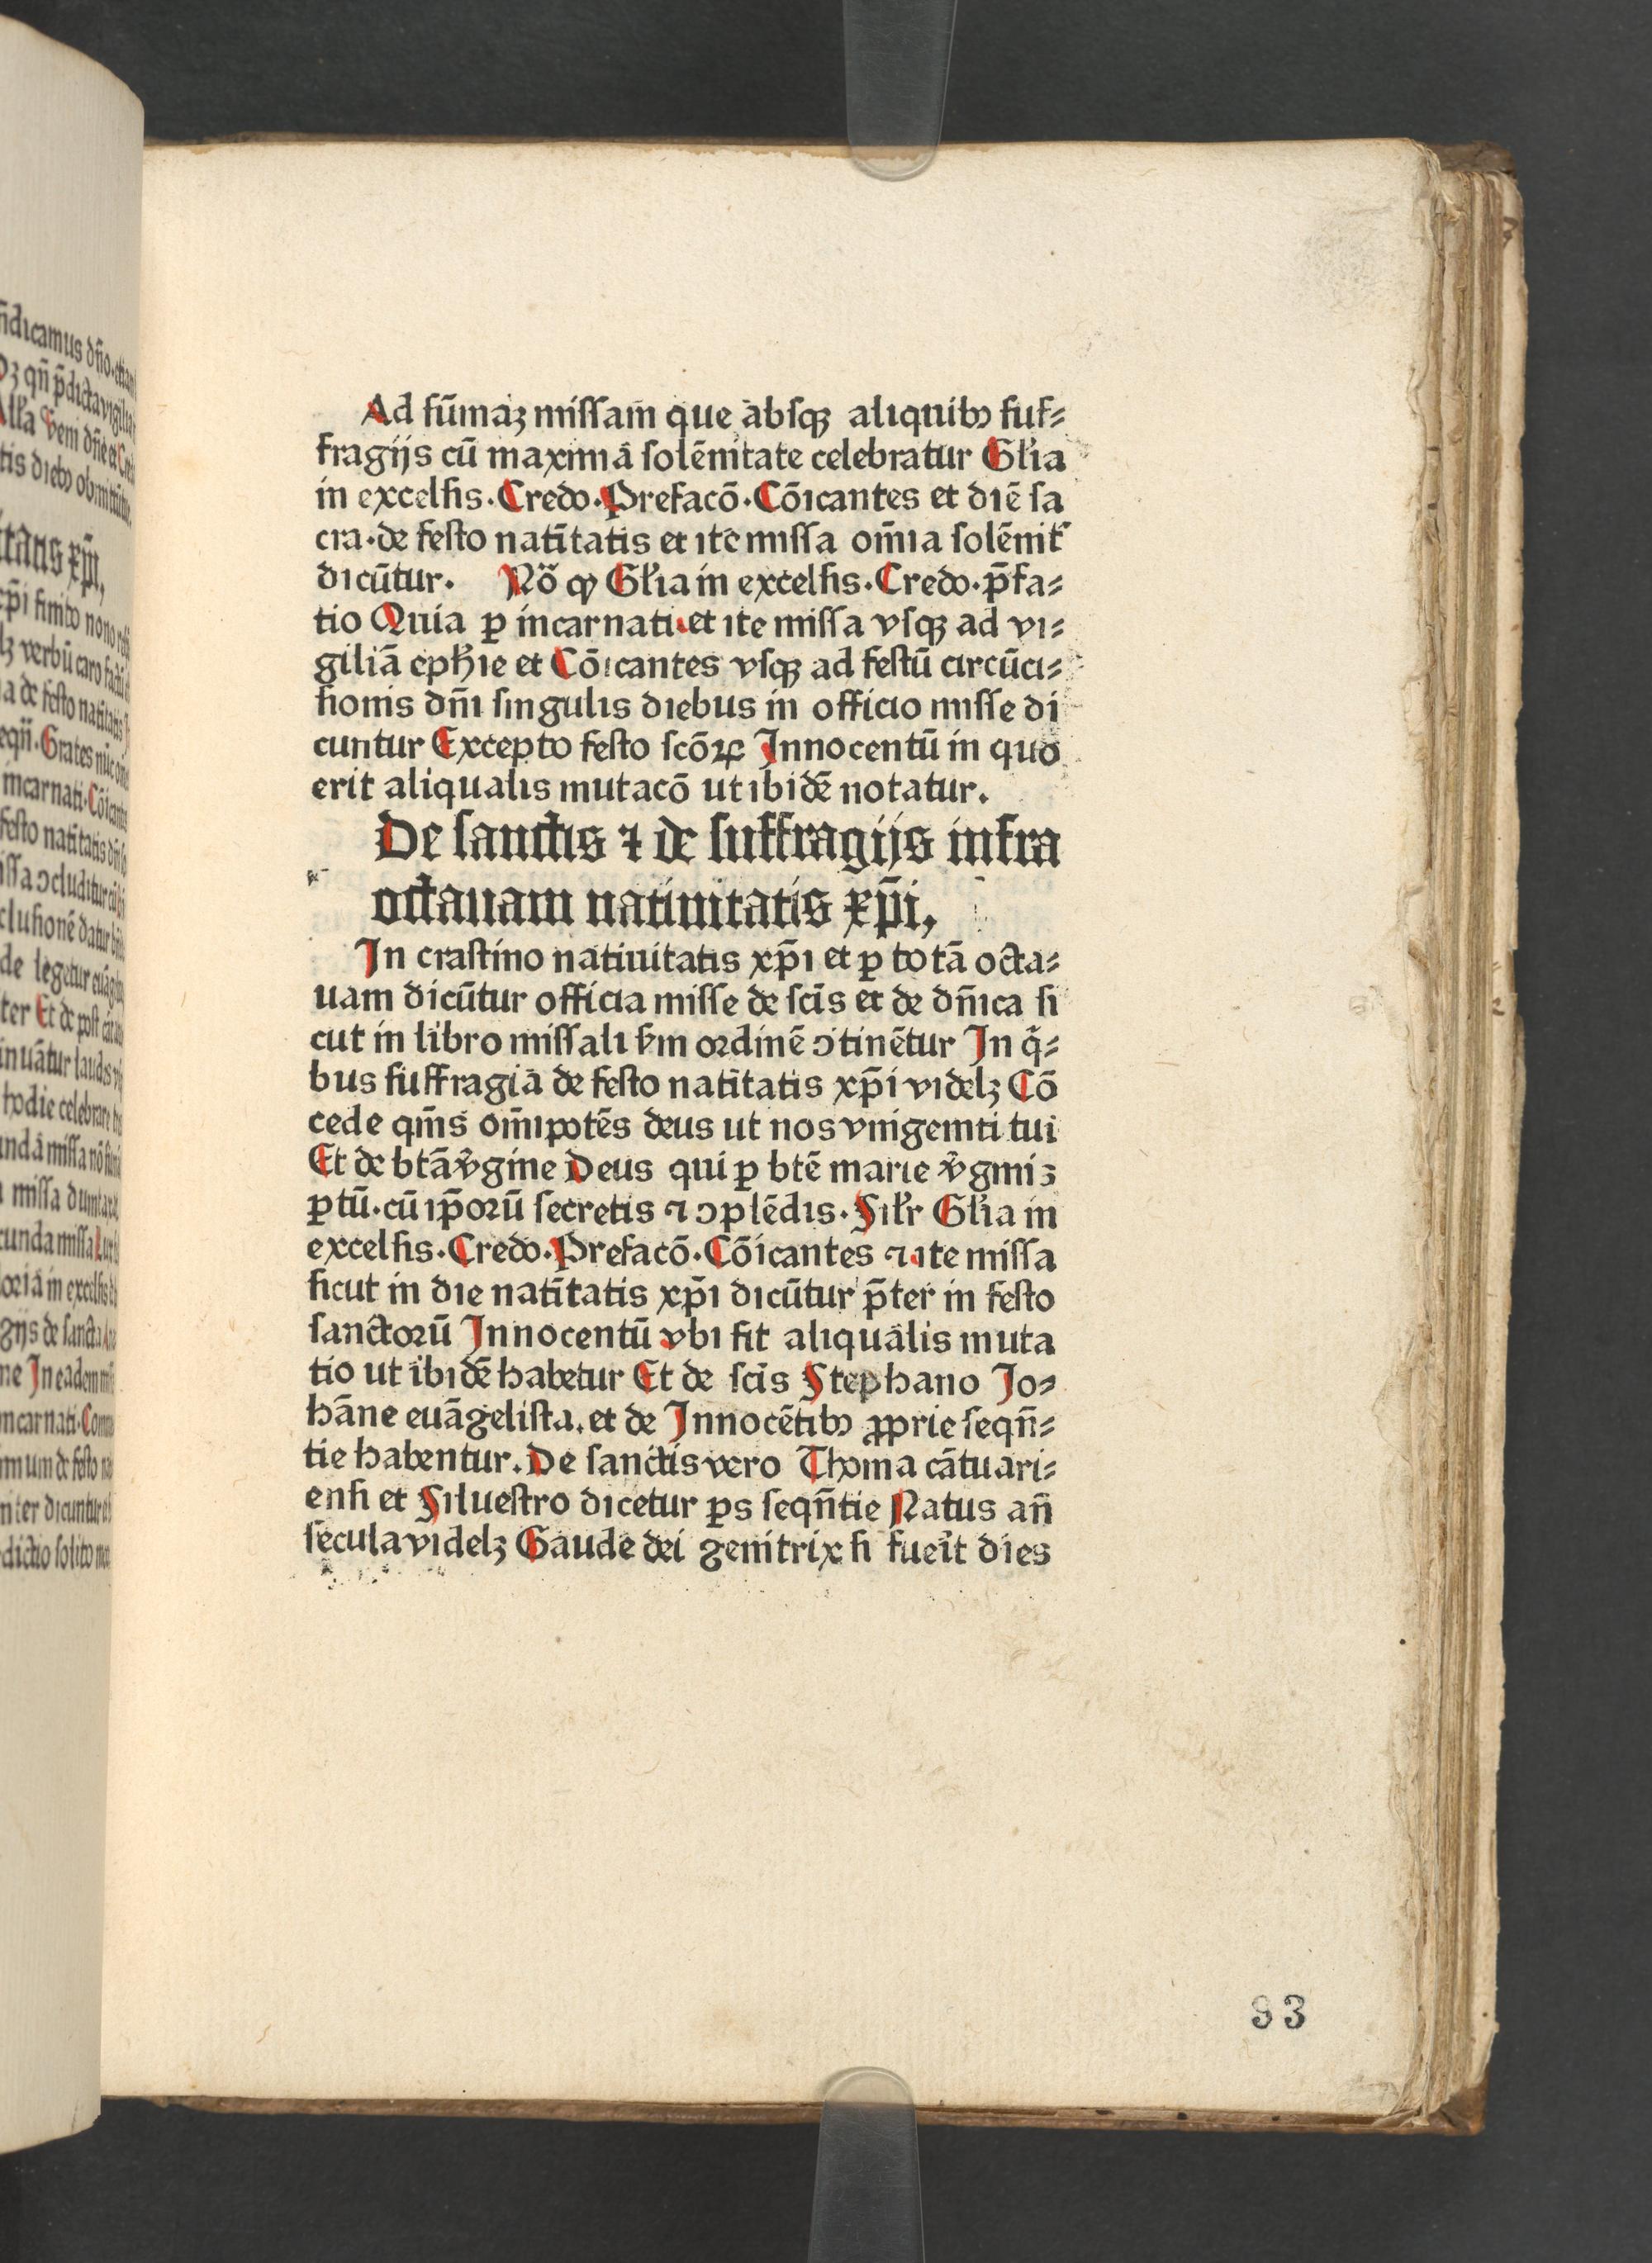 Ad sūmaꝫ missam que absqꝫ aliquibꝫ suf⸗
fragijs cū maxima solēnitate celebratur Glꝛ̄ia
in excelsis. Credo. Prefacō. Cōicantes et diē sa
cra. de festo natītatis et ite missa om̄ia solēnitͬ
dicūtur. Nō ꝙ Gl̄ia in excelsis. Credo. p̄fa⸗
tio Quia ꝑ incarnati. et ite missa vsqꝫ ad vi⸗
giliā eph̄ie et Cōicantes vsqꝫ ad festū circūci⸗
sionis dn̄i singulis diebus in officio misse di
cuntur Excepto festo scōꝝ Innocentū in quo
erit aliqualis mutacō ut ibidē notatur.
De sanctis ⁊ de suffragijs infra
octauam natiuitatis xp̄i,
In crastino natiuitatis xp̄i et ꝑ totā octa⸗
uam dicūtur officia misse de scīs et de dn̄ica si
cut in libro missali ẜm ordinē ↄtinētur In q̄⸗
bus suffragia de festo natītatis xp̄i videlꝫ Cō
cede qm̄s om̄ipotēs deus ut nos vnigeniti tui
Et de btā v̄gine Deus qui ꝑ btē marie v̄ginis
ꝑtū. cū ip̄orū secretis ⁊ ↄplēdis. Silr̄ Gl̄ia in
excelsis. Credo. Prefacō. Cōicantes ⁊ ite missa
sicut in die natītatis xp̄i dicūtur p̄ter in festo
sanctorū Innocentū vbi fit aliqualis muta
tio ut ibidē habetur Et de scīs Stephano Jo⸗
hāne euāgelista. et de Innocētibꝫ ꝓprie seqn̄⸗
tie habentur. De sanctis vero Thoma cātuari⸗
ensi et Siluestro dicetur ꝑs seqn̄tie Natus an̄
secula videlꝫ Gaude dei genitrix si fueīt dies
93